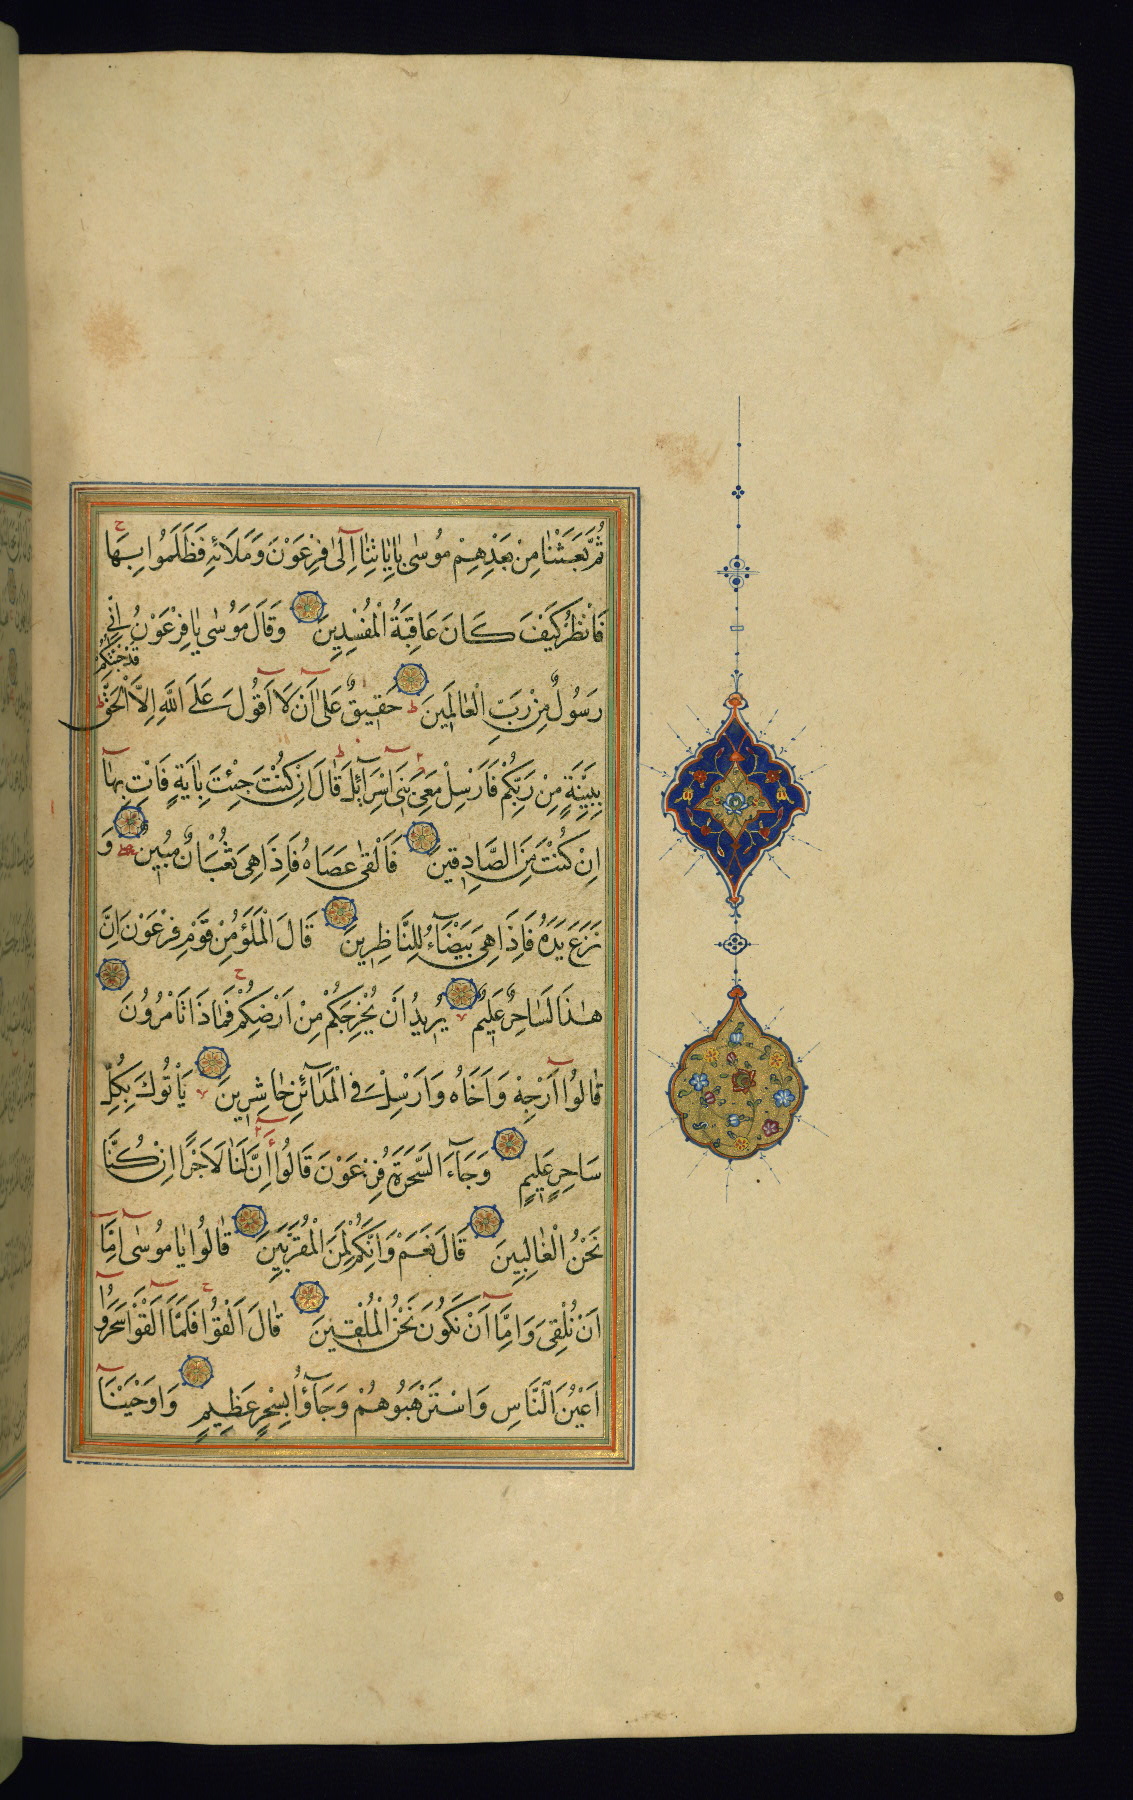 ثُمَّ بَعَثْنَا مِنْ بَعْدِهِمْ مُوسٰى بِاٰيَاتِنَا اِلٰى فِرْعَوْنَ وَمَلَائِهِ فَظَلَمُوا بِهَا
فَانْظُرْ كَيْفَ كَانَ عَاقِبَةُ الْمُفْسِدِينَ وَقَالَ مُوسٰى يَا فِرْعَوْنُ اِنّٖى
رَسُولٌ مِنْ رَبِّ الْعَالَمِينَ حَقِيقٌ عَلٰٓى اَنْ لَا اَقُولَ عَلَى اللّٰهِ اِلَّا الْحَقَّ قَدْ جِئْتُكُمْ
بِبَيِّنَةٍ مِنْ رَبِّكُمْ فَاَرْسِلْ مَعِىَ بَنِىٓ اِسْرَآئِلَ قَالَ اِنْ كُنْتَ جِئْتَ بِاٰيَةٍ فَاْتِ بِهَآ
اِنْ كُنْتَ مِنَ الصَّادِقِينَ فَاَلْقٰى عَصَاهُ فَاِذَا هِىَ ثُعْبَانٌ مُبِينٌ وَ
نَزَعَ يَدَهُ فَاِذَا هِىَ بَيْضَآءُ لِلنَّاظِرِينَ قَالَ الْمَلَؤُ مِنْ قَوْمِ فِرْعَوْنَ اِنَّ
هٰذَا لَسَاحِرٌ عَلِيمٌ يُرِيدُ اَنْ يُخْرِجَكُمْ مِنْ اَرْضِكُمْ فَمَاذَا تَاْمُرُونَ
قَالُوٓا اَرْجِهْ وَاَخَاهُ وَاَرْسِلْ فِى الْمَدَآئِنِ حَاشِرِينَ يَاْتُوكَ بِكُلِّ
سَاحِرٍ عَلِيمٍ وَجَآءَ السَّحَرَةُ فِرْعَوْنَ قَالُوٓا اَئِنَّ لَنَا لَاَجْرًا اِنْ كُنَّا
نَحْنُ الْغَالِبِينَ قَالَ نَعَمْ وَاِنَّكُمْ لَمِنَ الْمُقَرَّبِينَ قَالُوا يَا مُوسٰٓى اِمَّآ
اَنْ تُلْقِىَ وَاِمَّآ اَنْ نَكُونَ نَحْنُ الْمُلْقِينَ قَالَ اَلْقُوا فَلَمَّآ اَلْقَوْا سَحَرُوٓا
اَعْيُنَ النَّاسِ وَاسْتَرْهَبُوهُمْ وَجَآؤُا بِسِحْرٍ عَظِيمٍ وَاَوْحَيْنَآ